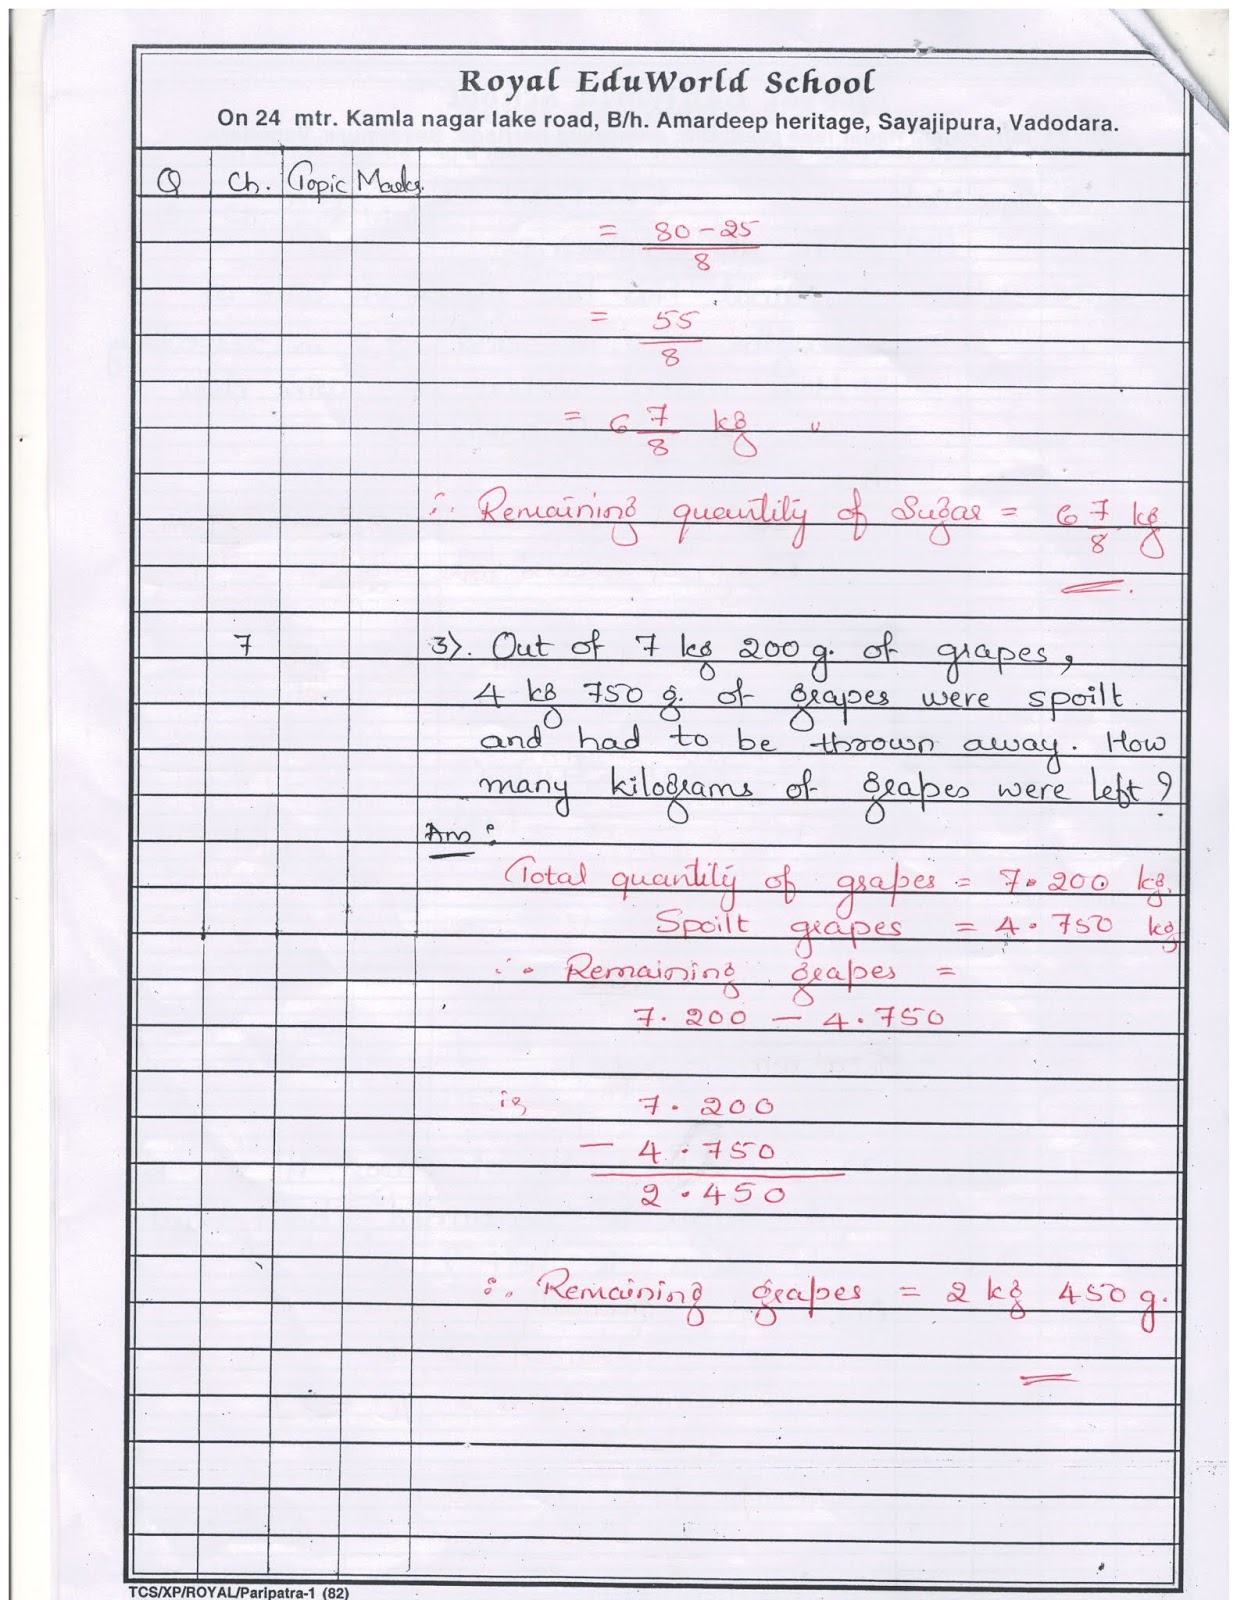 Royal EduWorld School
On 24 mtr. Kamla nagar lake road, B/h. Amardeep heritage, Sayajipura, Vadodara.
Q Ch. Topic Marks.
= 80 - 25
8
= 55
8
= 6 7/8 kg
∴ Remaining quantity of Sugar = 6 7/8 kg
7 3). Out of 7 kg 200 g. of grapes,
4 kg 750 g. of grapes were spoilt
and had to be thrown away. How
many kilograms of grapes were left ?
Ans :
Total quantity of grapes = 7.200 kg.
Spoilt grapes = 4.750 kg
∴ Remaining grapes =
7.200 - 4.750
7.200
- 4.750
2.450
∴ Remaining grapes = 2 kg 450 g.
TCS/XP/ROYAL/Paripatra-1 (82)